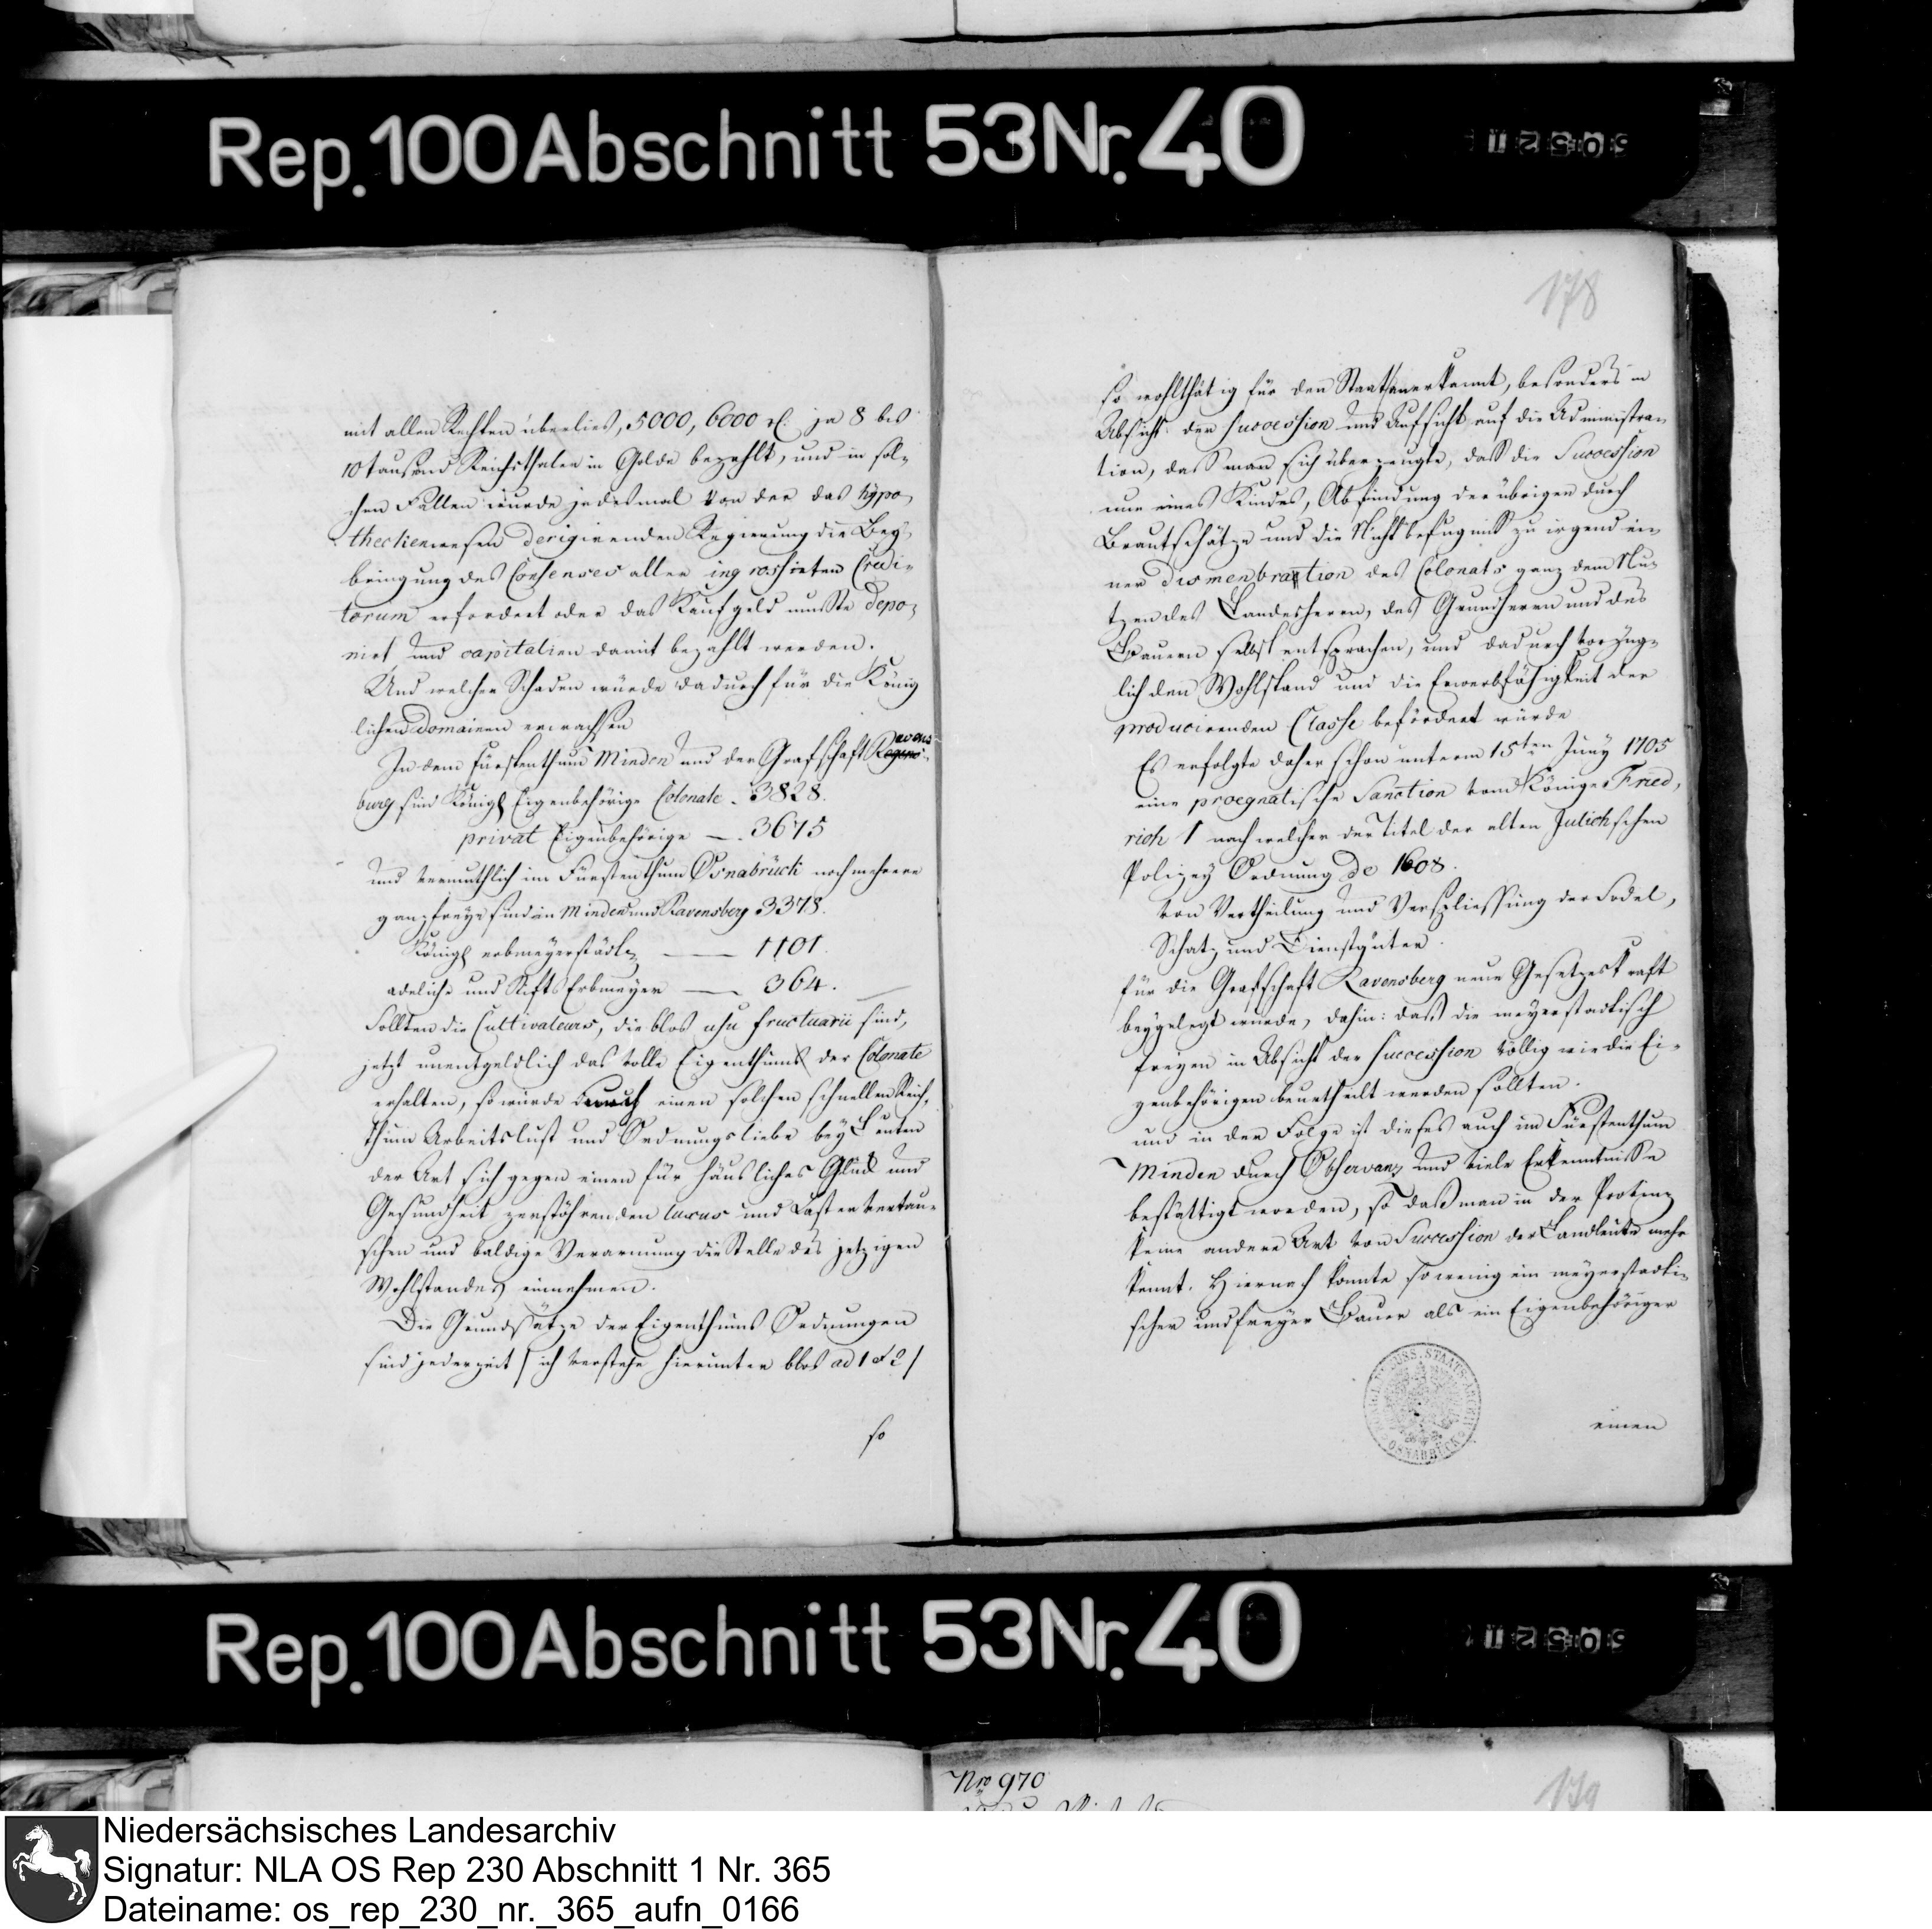 Rep. 100 Abschnitt 53 Nr. 40
mit allen Rechten überlies, 5000, 6000 rl: ja 8 bis
10 tausend Reichsthaler in Golde bezahlt, und in sol-
chen Fällen wurde jedesmal von der das hypo-
theckenwesen derigirenden Regierung die Bey-
bringung des Consenses aller ingrossirten Credi-
torum erfordert oder das Kaufgeld muste depo-
nirt und capitalien damit bezahlt werden.
Und welcher Schaden würde dadurch für die König
lichen Domainen erwachsen
In dem Fürstenthum Minden und der Grafschaft Ravens-
burg sind Königl Eigenbehörige Colonate - 3828.
privat Eigenbehörige - 3675
und vermuthlich im Fürstenthum Osnabrück noch mehrere
ganz freye sind in Minden und Ravensberg 3378.
Königl erbmeyerstädt. 1101.
adeliche und Stifts Erbmeyer 364.
Sollten die Cultivateurs, die blos usu fructuarii sind,
jetzt unentgeldlich das volle Eigenthum der Colonate
erhalten, so würde durch einen solchen schnellen Reich-
thum Arbeitslust und Ordnungsliebe bey Leuten
der Art sich gegen einen für häusliches Glück und
Gesundheit zerstöhrenden luxus und Laster vertau-
schen und baldige Verarmung die Stelle des jetzigen
Wohlstandes einnehmen.
Die Grundsätze der Eigenthums Ordnungen
sind jederzeit / ich verstehe hierunter blos ad 1 et 2 /
so
178
so wohlthätig für den Staat anerkannt, besonders in
Absicht der Succession und Aufsicht auf die Administra-
tion, daß man sich überzeugte, daß die Succession
nur eines Kindes, Abfindung der übrigen durch
Brautschätze und die Nichtbefugniß zu irgend ei-
ner dismenbration des Colonats ganz dem Nu-
tzen des Landesherrn, des Grundherrn und des
Bauern selbst entsprachen, und dadurch vorzüg-
lich den Wohlstand und die Erwerbfähigkeit der
producirenden Classe befördert würde
Es erfolgte daher schon unterm 15ten Juny 1705
eine proegnatische Sanction vom Könige Fried-
rich 1 nach welcher der Titel der alten Julichschen
Polizey Ordnung de 1608.
von Vertheilung und Versplissung der Sodel,
Schatz und Dienstgüter.
für die Grafschaft Ravensberg neue Gesetzeskraft
beygelegt wurde, dahin: daß die meyerstadtisch
freyen in Absicht der Succession völlig wie die Ei-
genbehörigen beurtheilt werden sollten.
und in der Folge ist dieses auch im Fürstenthum
Minden durch Observanz und viele Erkenntnisse
bestättigt worden, so daß man in der Provinz
keine andere Art von Succession der Landleute mehr
kennt. Hiernach konnte so wenig ein meyerstadti-
scher und freyer Bauer als ein Eigenbehöriger
STAATS-ARCHIV
OSNABRÜCK
einen
Rep. 100 Abschnitt 53 Nr. 40
Nro 970
179
Niedersächsisches Landesarchiv
Signatur: NLA OS Rep 230 Abschnitt 1 Nr. 365
Dateiname: os_rep_230_nr._365_aufn_0166